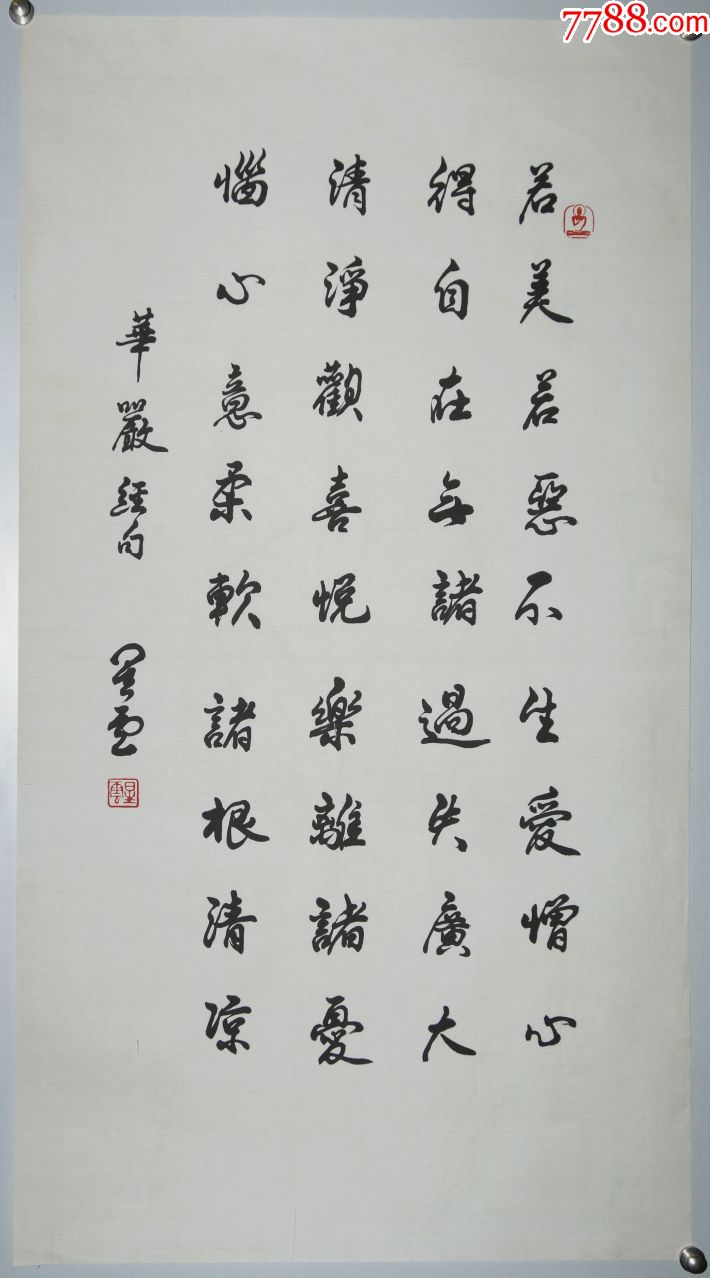 7788.com
若美若惡不生愛憎心
得自在無諸過失廣大
清淨觀喜悅樂離諸憂
惱心意柔軟諸根清涼
華嚴經句
星雲
星雲